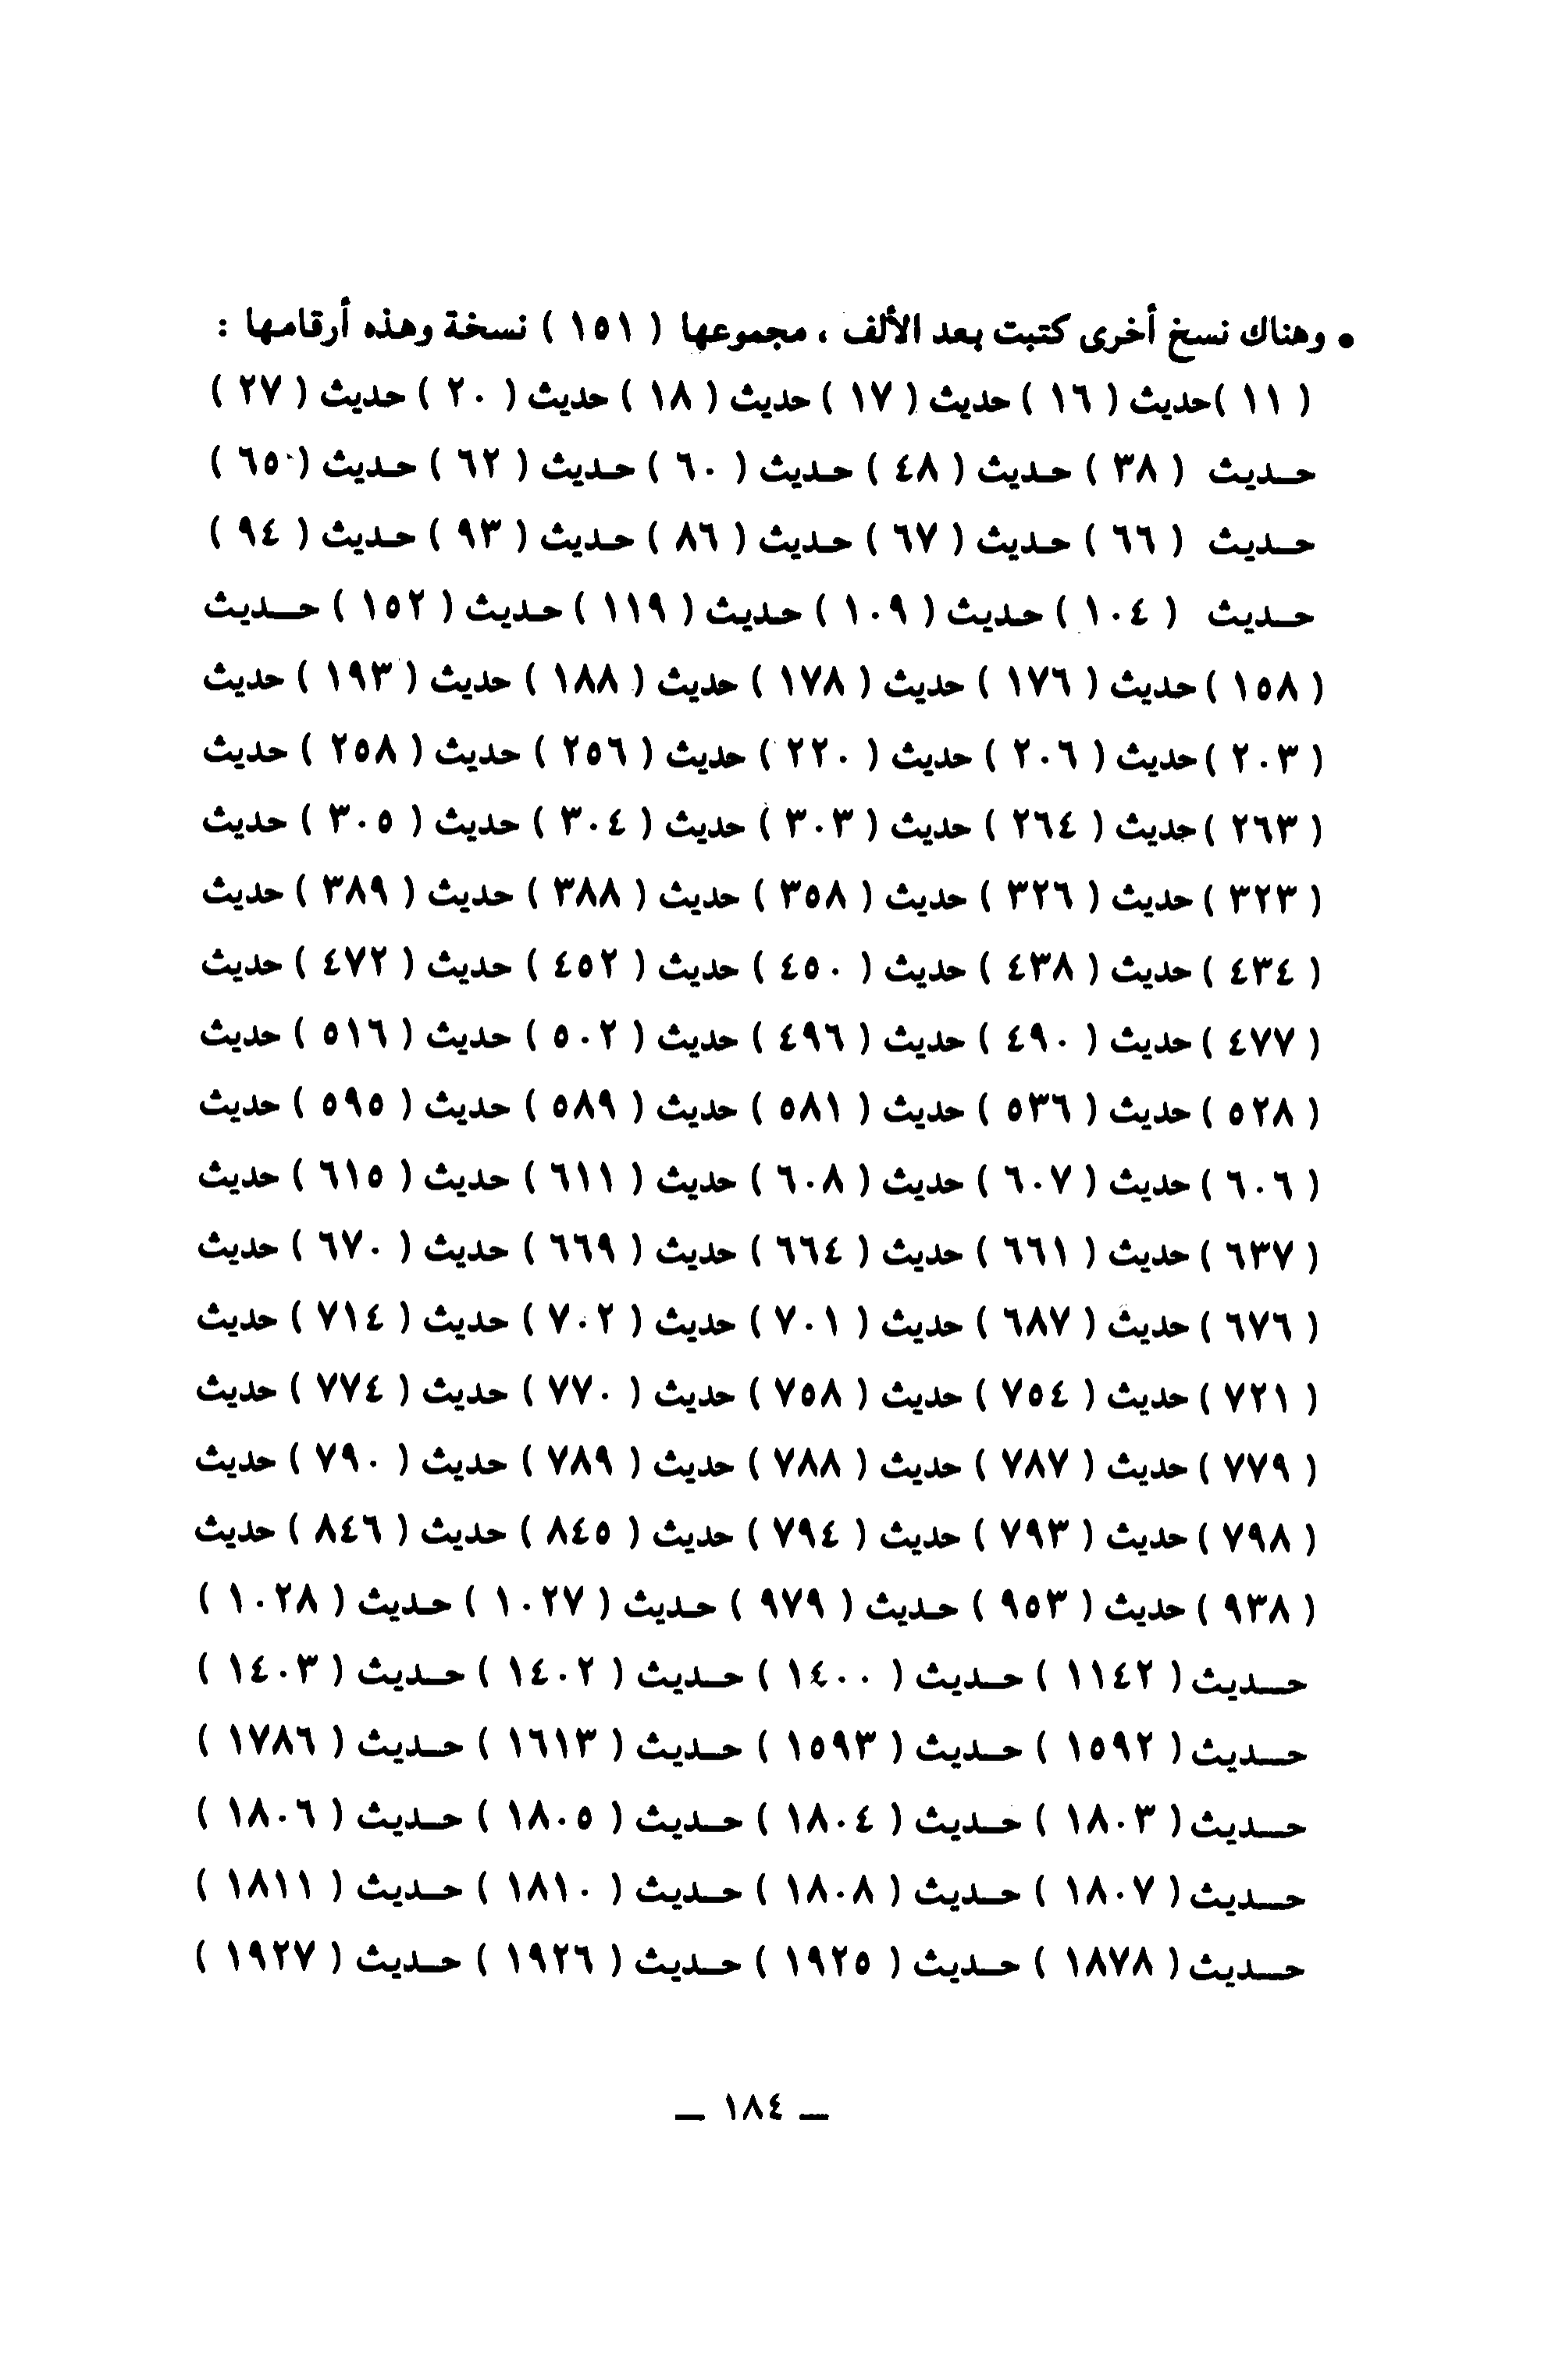 • وهناك نسخ أخرى كتبت بعد الألف ، مجموعها ( ١٥١ ) نسخة وهذه أرقامها :
( ١١ ) حديث ( ١٦ ) حديث ( ١٧ ) حديث ( ١٨ ) حديث ( ٢٠ ) حديث ( ٢٧ )
حـديث ( ٣٨ ) حـديث ( ٤٨ ) حـديث ( ٦٠ ) حـديث ( ٦٢ ) حـديث ( ٦٥ )
حـديث ( ٦٦ ) حـديث ( ٦٧ ) حـديث ( ٨٦ ) حـديث ( ٩٣ ) حـديث ( ٩٤ )
حـديث ( ١٠٤ ) حـديث ( ١٠٩ ) حـديث ( ١١٩ ) حـديث ( ١٥٢ ) حـديث
( ١٥٨ ) حديث ( ١٧٦ ) حديث ( ١٧٨ ) حديث ( ١٨٨ ) حديث ( ١٩٣ ) حديث
( ٢٠٣ ) حديث ( ٢٠٦ ) حديث ( ٢٢٠ ) حديث ( ٢٥٦ ) حديث ( ٢٥٨ ) حديث
( ٢٦٣ ) حديث ( ٢٦٤ ) حديث ( ٣٠٣ ) حديث ( ٣٠٤ ) حديث ( ٣٠٥ ) حديث
( ٣٢٣ ) حديث ( ٣٢٦ ) حديث ( ٣٥٨ ) حديث ( ٣٨٨ ) حديث ( ٣٨٩ ) حديث
( ٤٣٤ ) حديث ( ٤٣٨ ) حديث ( ٤٥٠ ) حديث ( ٤٥٢ ) حديث ( ٤٧٢ ) حديث
( ٤٧٧ ) حديث ( ٤٩٠ ) حديث ( ٤٩٦ ) حديث ( ٥٠٢ ) حديث ( ٥١٦ ) حديث
( ٥٢٨ ) حديث ( ٥٣٦ ) حديث ( ٥٨١ ) حديث ( ٥٨٩ ) حديث ( ٥٩٥ ) حديث
( ٦٠٦ ) حديث ( ٦٠٧ ) حديث ( ٦٠٨ ) حديث ( ٦١١ ) حديث ( ٦١٥ ) حديث
( ٦٣٧ ) حديث ( ٦٦١ ) حديث ( ٦٦٤ ) حديث ( ٦٦٩ ) حديث ( ٦٧٠ ) حديث
( ٦٧٦ ) حديث ( ٦٨٧ ) حديث ( ٧٠١ ) حديث ( ٧٠٢ ) حديث ( ٧١٤ ) حديث
( ٧٢١ ) حديث ( ٧٥٤ ) حديث ( ٧٥٨ ) حديث ( ٧٧٠ ) حديث ( ٧٧٤ ) حديث
( ٧٧٩ ) حديث ( ٧٨٧ ) حديث ( ٧٨٨ ) حديث ( ٧٨٩ ) حديث ( ٧٩٠ ) حديث
( ٧٩٨ ) حديث ( ٧٩٣ ) حديث ( ٧٩٤ ) حديث ( ٨٤٥ ) حديث ( ٨٤٦ ) حديث
( ٩٣٨ ) حديث ( ٩٥٣ ) حـديث ( ٩٧٩ ) حـديث ( ١٠٢٧ ) حـديث ( ١٠٢٨ )
حـديث ( ١١٤٢ ) حـديث ( ١٤٠٠ ) حـديث ( ١٤٠٢ ) حـديث ( ١٤٠٣ )
حـديث ( ١٥٩٢ ) حـديث ( ١٥٩٣ ) حـديث ( ١٦١٣ ) حـديث ( ١٧٨٦ )
حـديث ( ١٨٠٣ ) حـديث ( ١٨٠٤ ) حـديث ( ١٨٠٥ ) حـديث ( ١٨٠٦ )
حـديث ( ١٨٠٧ ) حـديث ( ١٨٠٨ ) حـديث ( ١٨١٠ ) حـديث ( ١٨١١ )
حـديث ( ١٨٧٨ ) حـديث ( ١٩٢٥ ) حـديث ( ١٩٢٦ ) حـديث ( ١٩٢٧ )
— ١٨٤ —